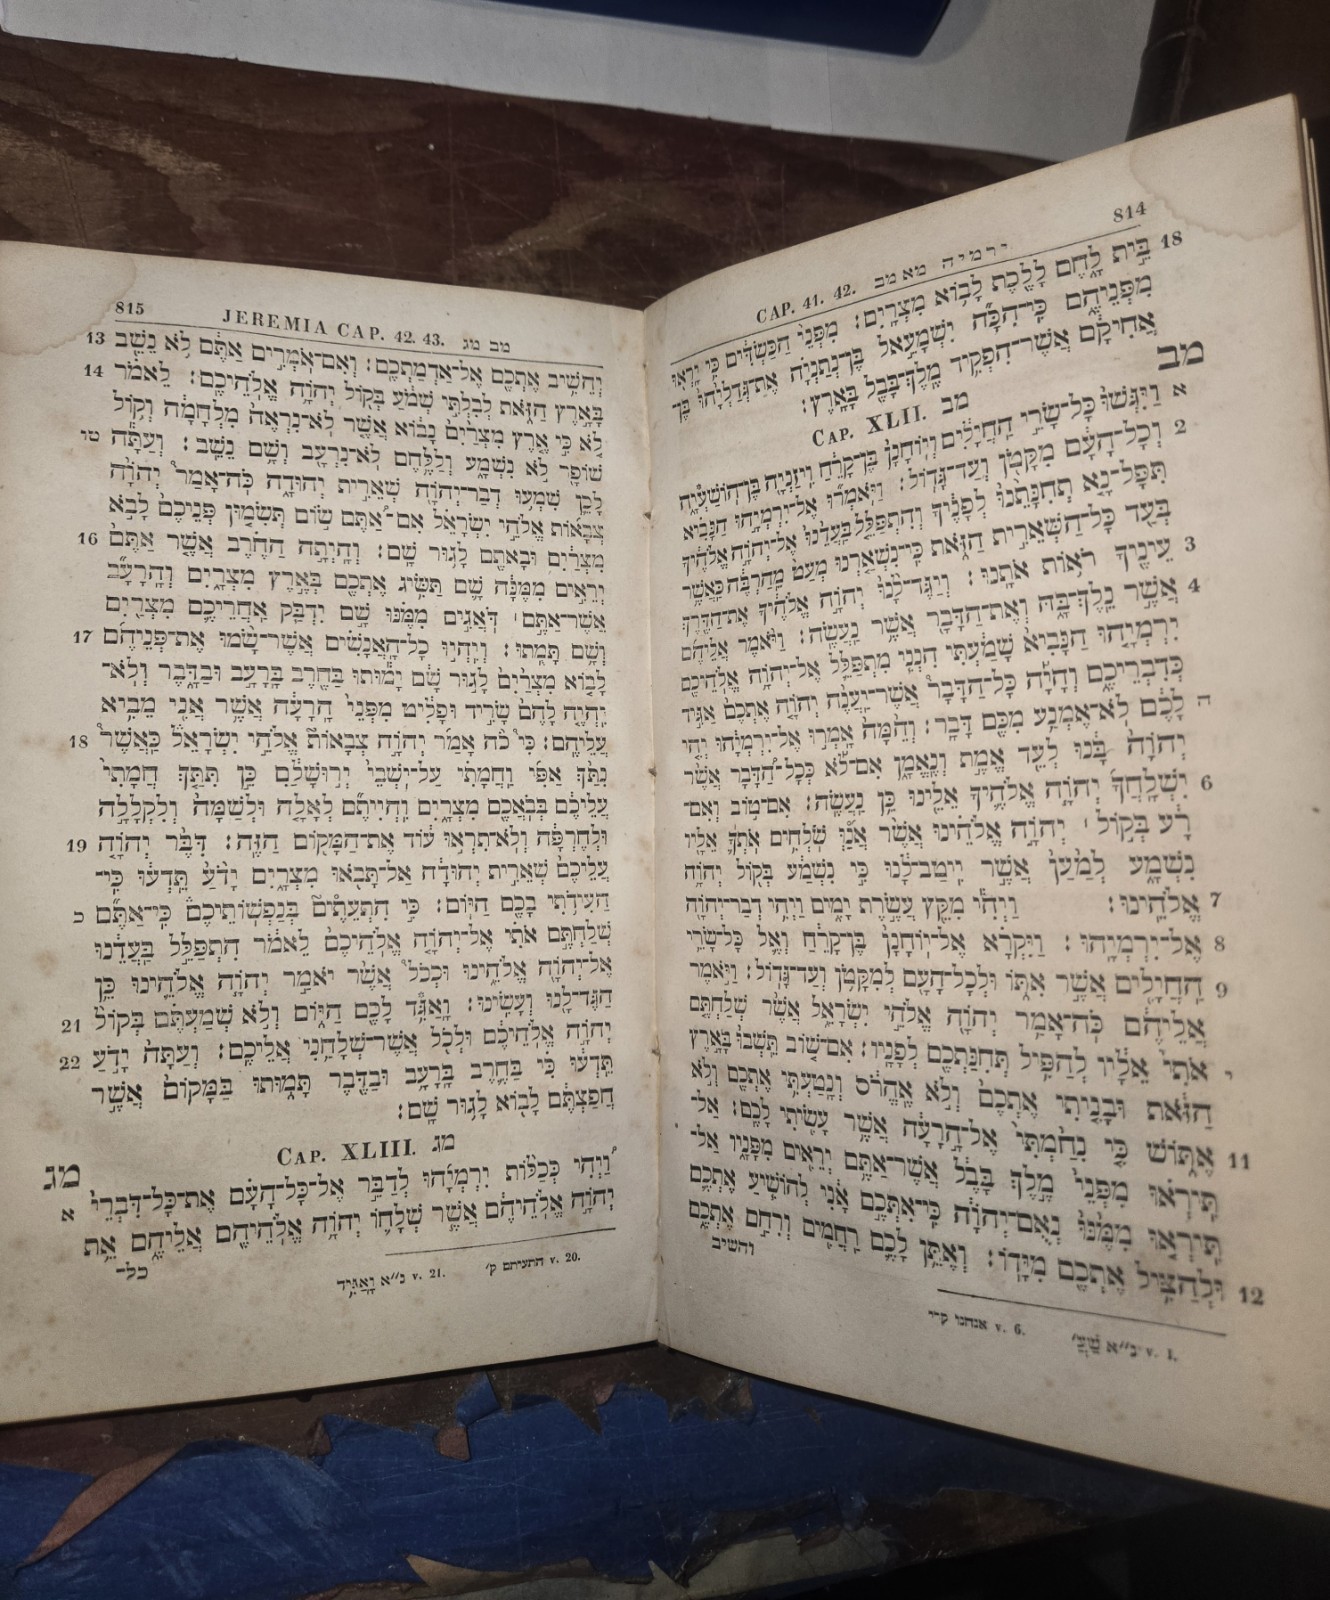 814
CAP. 41. 42. ירמיה מא מב
18 בֵּית לֶחֶם לָלֶכֶת לָבוֹא מִצְרָיִם: מִפְּנֵי הַכַּשְׂדִּים כִּי יָרְאוּ
מִפְּנֵיהֶם כִּי־הִכָּה יִשְׁמָעֵאל בֶּן־נְתַנְיָה אֶת־גְּדַלְיָהוּ בֶּן־
אֲחִיקָם אֲשֶׁר־הִפְקִיד מֶלֶךְ־בָּבֶל בָּאָרֶץ:
מב
CAP. XLII. מב
א וַיִּגְּשׁוּ כָּל־שָׂרֵי הַחֲיָלִים וְיוֹחָנָן בֶּן־קָרֵחַ וִיזַנְיָה בֶּן־הוֹשַׁעְיָה
2 וְכָל־הָעָם מִקָּטֹן וְעַד־גָּדוֹל: וַיֹּאמְרוּ אֶל־יִרְמְיָהוּ הַנָּבִיא
תִּפָּל־נָא תְחִנָּתֵנוּ לְפָנֶיךָ וְהִתְפַּלֵּל בַּעֲדֵנוּ אֶל־יְהוָֹה אֱלֹהֶיךָ
בְּעַד כָּל־הַשְּׁאֵרִית הַזֹּאת כִּי־נִשְׁאַרְנוּ מְעַט מֵהַרְבֵּה כַּאֲשֶׁר
3 עֵינֶיךָ רֹאוֹת אֹתָנוּ: וְיַגֶּד־לָנוּ יְהוָֹה אֱלֹהֶיךָ אֶת־הַדֶּרֶךְ
4 אֲשֶׁר נֵלֶךְ־בָּהּ וְאֶת־הַדָּבָר אֲשֶׁר נַעֲשֶׂה: וַיֹּאמֶר אֲלֵיהֶם
יִרְמְיָהוּ הַנָּבִיא שָׁמַעְתִּי הִנְנִי מִתְפַּלֵּל אֶל־יְהוָֹה אֱלֹהֵיכֶם
כְּדִבְרֵיכֶם וְהָיָה כָּל־הַדָּבָר אֲשֶׁר־יַעֲנֶה יְהוָֹה אֶתְכֶם אַגִּיד
ה לָכֶם לֹא־אֶמְנַע מִכֶּם דָּבָר: וְהֵמָּה אָמְרוּ אֶל־יִרְמְיָהוּ יְהִי
יְהוָֹה בָּנוּ לְעֵד אֱמֶת וְנֶאֱמָן אִם־לֹא כְּכָל־הַדָּבָר אֲשֶׁר
6 יִשְׁלָחֲךָ יְהוָֹה אֱלֹהֶיךָ אֵלֵינוּ כֵּן נַעֲשֶׂה: אִם־טוֹב וְאִם־
רָע בְּקוֹל ׀ יְהוָֹה אֱלֹהֵינוּ אֲשֶׁר אֲנַוּ שֹׁלְחִים אֹתְךָ אֵלָיו
נִשְׁמָע לְמַעַן אֲשֶׁר יִיטַב־לָנוּ כִּי נִשְׁמַע בְּקוֹל יְהוָֹה
7 אֱלֹהֵינוּ: וַיְהִי מִקֵּץ עֲשֶׂרֶת יָמִים וַיְהִי דְבַר־יְהוָֹה
8 אֶל־יִרְמְיָהוּ: וַיִּקְרָא אֶל־יוֹחָנָן בֶּן־קָרֵחַ וְאֶל כָּל־שָׂרֵי
9 הַחֲיָלִים אֲשֶׁר אִתּוֹ וּלְכָל־הָעָם לְמִקָּטֹן וְעַד־גָּדוֹל: וַיֹּאמֶר
אֲלֵיהֶם כֹּה־אָמַר יְהוָֹה אֱלֹהֵי יִשְׂרָאֵל אֲשֶׁר שְׁלַחְתֶּם
י אֹתִי אֵלָיו לְהַפִּיל תְּחִנַּתְכֶם לְפָנָיו: אִם־שׁוֹב תֵּשְׁבוּ בָּאָרֶץ
הַזֹּאת וּבָנִיתִי אֶתְכֶם וְלֹא אֶהֱרֹס וְנָטַעְתִּי אֶתְכֶם וְלֹא
11 אֶתּוֹשׁ כִּי נִחַמְתִּי אֶל־הָרָעָה אֲשֶׁר עָשִׂיתִי לָכֶם: אַל־
תִּירְאוּ מִפְּנֵי מֶלֶךְ בָּבֶל אֲשֶׁר־אַתֶּם יְרֵאִים מִפָּנָיו אַל־
תִּירְאוּ מִמֶּנּוּ נְאֻם־יְהוָֹה כִּי־אִתְּכֶם אָנִי לְהוֹשִׁיעַ אֶתְכֶם
12 וּלְהַצִּיל אֶתְכֶם מִיָּדוֹ: וְאֶתֵּן לָכֶם רַחֲמִים וְרִחַם אֶתְכֶם
והשיב
v. 6. אנחנו ק׳
v. 1. נ״א
815
JEREMIA CAP. 42. 43. מב מג
13 וְהֵשִׁיב אֶתְכֶם אֶל־אַדְמַתְכֶם: וְאִם־אֹמְרִים אַתֶּם לֹא נֵשֵׁב
14 בָּאָרֶץ הַזֹּאת לְבִלְתִּי שְׁמֹעַ בְּקוֹל יְהוָֹה אֱלֹהֵיכֶם: לֵאמֹר
לֹא כִּי אֶרֶץ מִצְרַיִם נָבוֹא אֲשֶׁר לֹא־נִרְאֶה מִלְחָמָה וְקוֹל
טו שׁוֹפָר לֹא נִשְׁמָע וְלַלֶּחֶם לֹא־נִרְעָב וְשָׁם נֵשֵׁב: וְעַתָּה
לָכֵן שִׁמְעוּ דְבַר־יְהוָֹה שְׁאֵרִית יְהוּדָה כֹּה־אָמַר יְהוָֹה
צְבָאוֹת אֱלֹהֵי יִשְׂרָאֵל אִם־אַתֶּם שׂוֹם תְּשִׂמוּן פְּנֵיכֶם לָבֹא
16 מִצְרַיִם וּבָאתֶם לָגוּר שָׁם: וְהָיְתָה הַחֶרֶב אֲשֶׁר אַתֶּם
יְרֵאִים מִמֶּנָּה שָׁם תַּשִּׂיג אֶתְכֶם בְּאֶרֶץ מִצְרָיִם וְהָרָעָב
אֲשֶׁר־אַתֶּם ׀ דֹּאֲגִים מִמֶּנּוּ שָׁם יִדְבַּק אַחֲרֵיכֶם מִצְרַיִם
17 וְשָׁם תָּמֻתוּ: וְיִהְיוּ כָל־הָאֲנָשִׁים אֲשֶׁר־שָׂמוּ אֶת־פְּנֵיהֶם
לָבוֹא מִצְרַיִם לָגוּר שָׁם יָמוּתוּ בַּחֶרֶב בָּרָעָב וּבַדָּבֶר וְלֹא־
יִהְיֶה לָהֶם שָׂרִיד וּפָלִיט מִפְּנֵי הָרָעָה אֲשֶׁר אֲנִי מֵבִיא
18 עֲלֵיהֶם: כִּי כֹה אָמַר יְהוָֹה צְבָאוֹת אֱלֹהֵי יִשְׂרָאֵל כַּאֲשֶׁר
נִתַּךְ אַפִּי וַחֲמָתִי עַל־יֹשְׁבֵי יְרוּשָׁלַםִ כֵּן תִּתַּךְ חֲמָתִי
עֲלֵיכֶם בְּבֹאֲכֶם מִצְרָיִם וִהְיִיתֶם לְאָלָה וּלְשַׁמָּה וְלִקְלָלָה
19 וּלְחֶרְפָּה וְלֹא־תִרְאוּ עוֹד אֶת־הַמָּקוֹם הַזֶּה: דִּבֶּר יְהוָֹה
עֲלֵיכֶם שְׁאֵרִית יְהוּדָה אַל־תָּבֹאוּ מִצְרָיִם יָדֹעַ תֵּדְעוּ כִּי־
כ הַעִידֹתִי בָכֶם הַיּוֹם: כִּי הִתְעֵתֶים בְּנַפְשׁוֹתֵיכֶם כִּי־אַתֶּם
שְׁלַחְתֶּם אֹתִי אֶל־יְהוָֹה אֱלֹהֵיכֶם לֵאמֹר הִתְפַּלֵּל בַּעֲדֵנוּ
אֶל־יְהוָֹה אֱלֹהֵינוּ וּכְכֹל אֲשֶׁר יֹאמַר יְהוָֹה אֱלֹהֵינוּ כֵּן
21 הַגֶּד־לָנוּ וְעָשִׂינוּ: וָאַגִּד לָכֶם הַיּוֹם וְלֹא שְׁמַעְתֶּם בְּקוֹל
22 יְהוָֹה אֱלֹהֵיכֶם וּלְכֹל אֲשֶׁר־שְׁלָחַנִי אֲלֵיכֶם: וְעַתָּה יָדֹעַ
תֵּדְעוּ כִּי בַּחֶרֶב בָּרָעָב וּבַדֶּבֶר תָּמוּתוּ בַּמָּקוֹם אֲשֶׁר
חֲפַצְתֶּם לָבוֹא לָגוּר שָׁם:
CAP. XLIII. מג
מג
א וַיְהִי כְּכַלּוֹת יִרְמְיָהוּ לְדַבֵּר אֶל־כָּל־הָעָם אֶת־כָּל־דִּבְרֵי
יְהוָֹה אֱלֹהֵיהֶם אֲשֶׁר שְׁלָחוֹ יְהוָֹה אֱלֹהֵיהֶם אֲלֵיהֶם אֵת
כל־
v. 20. התעיתם ק׳ v. 21. נ״א וָאַגִּיד